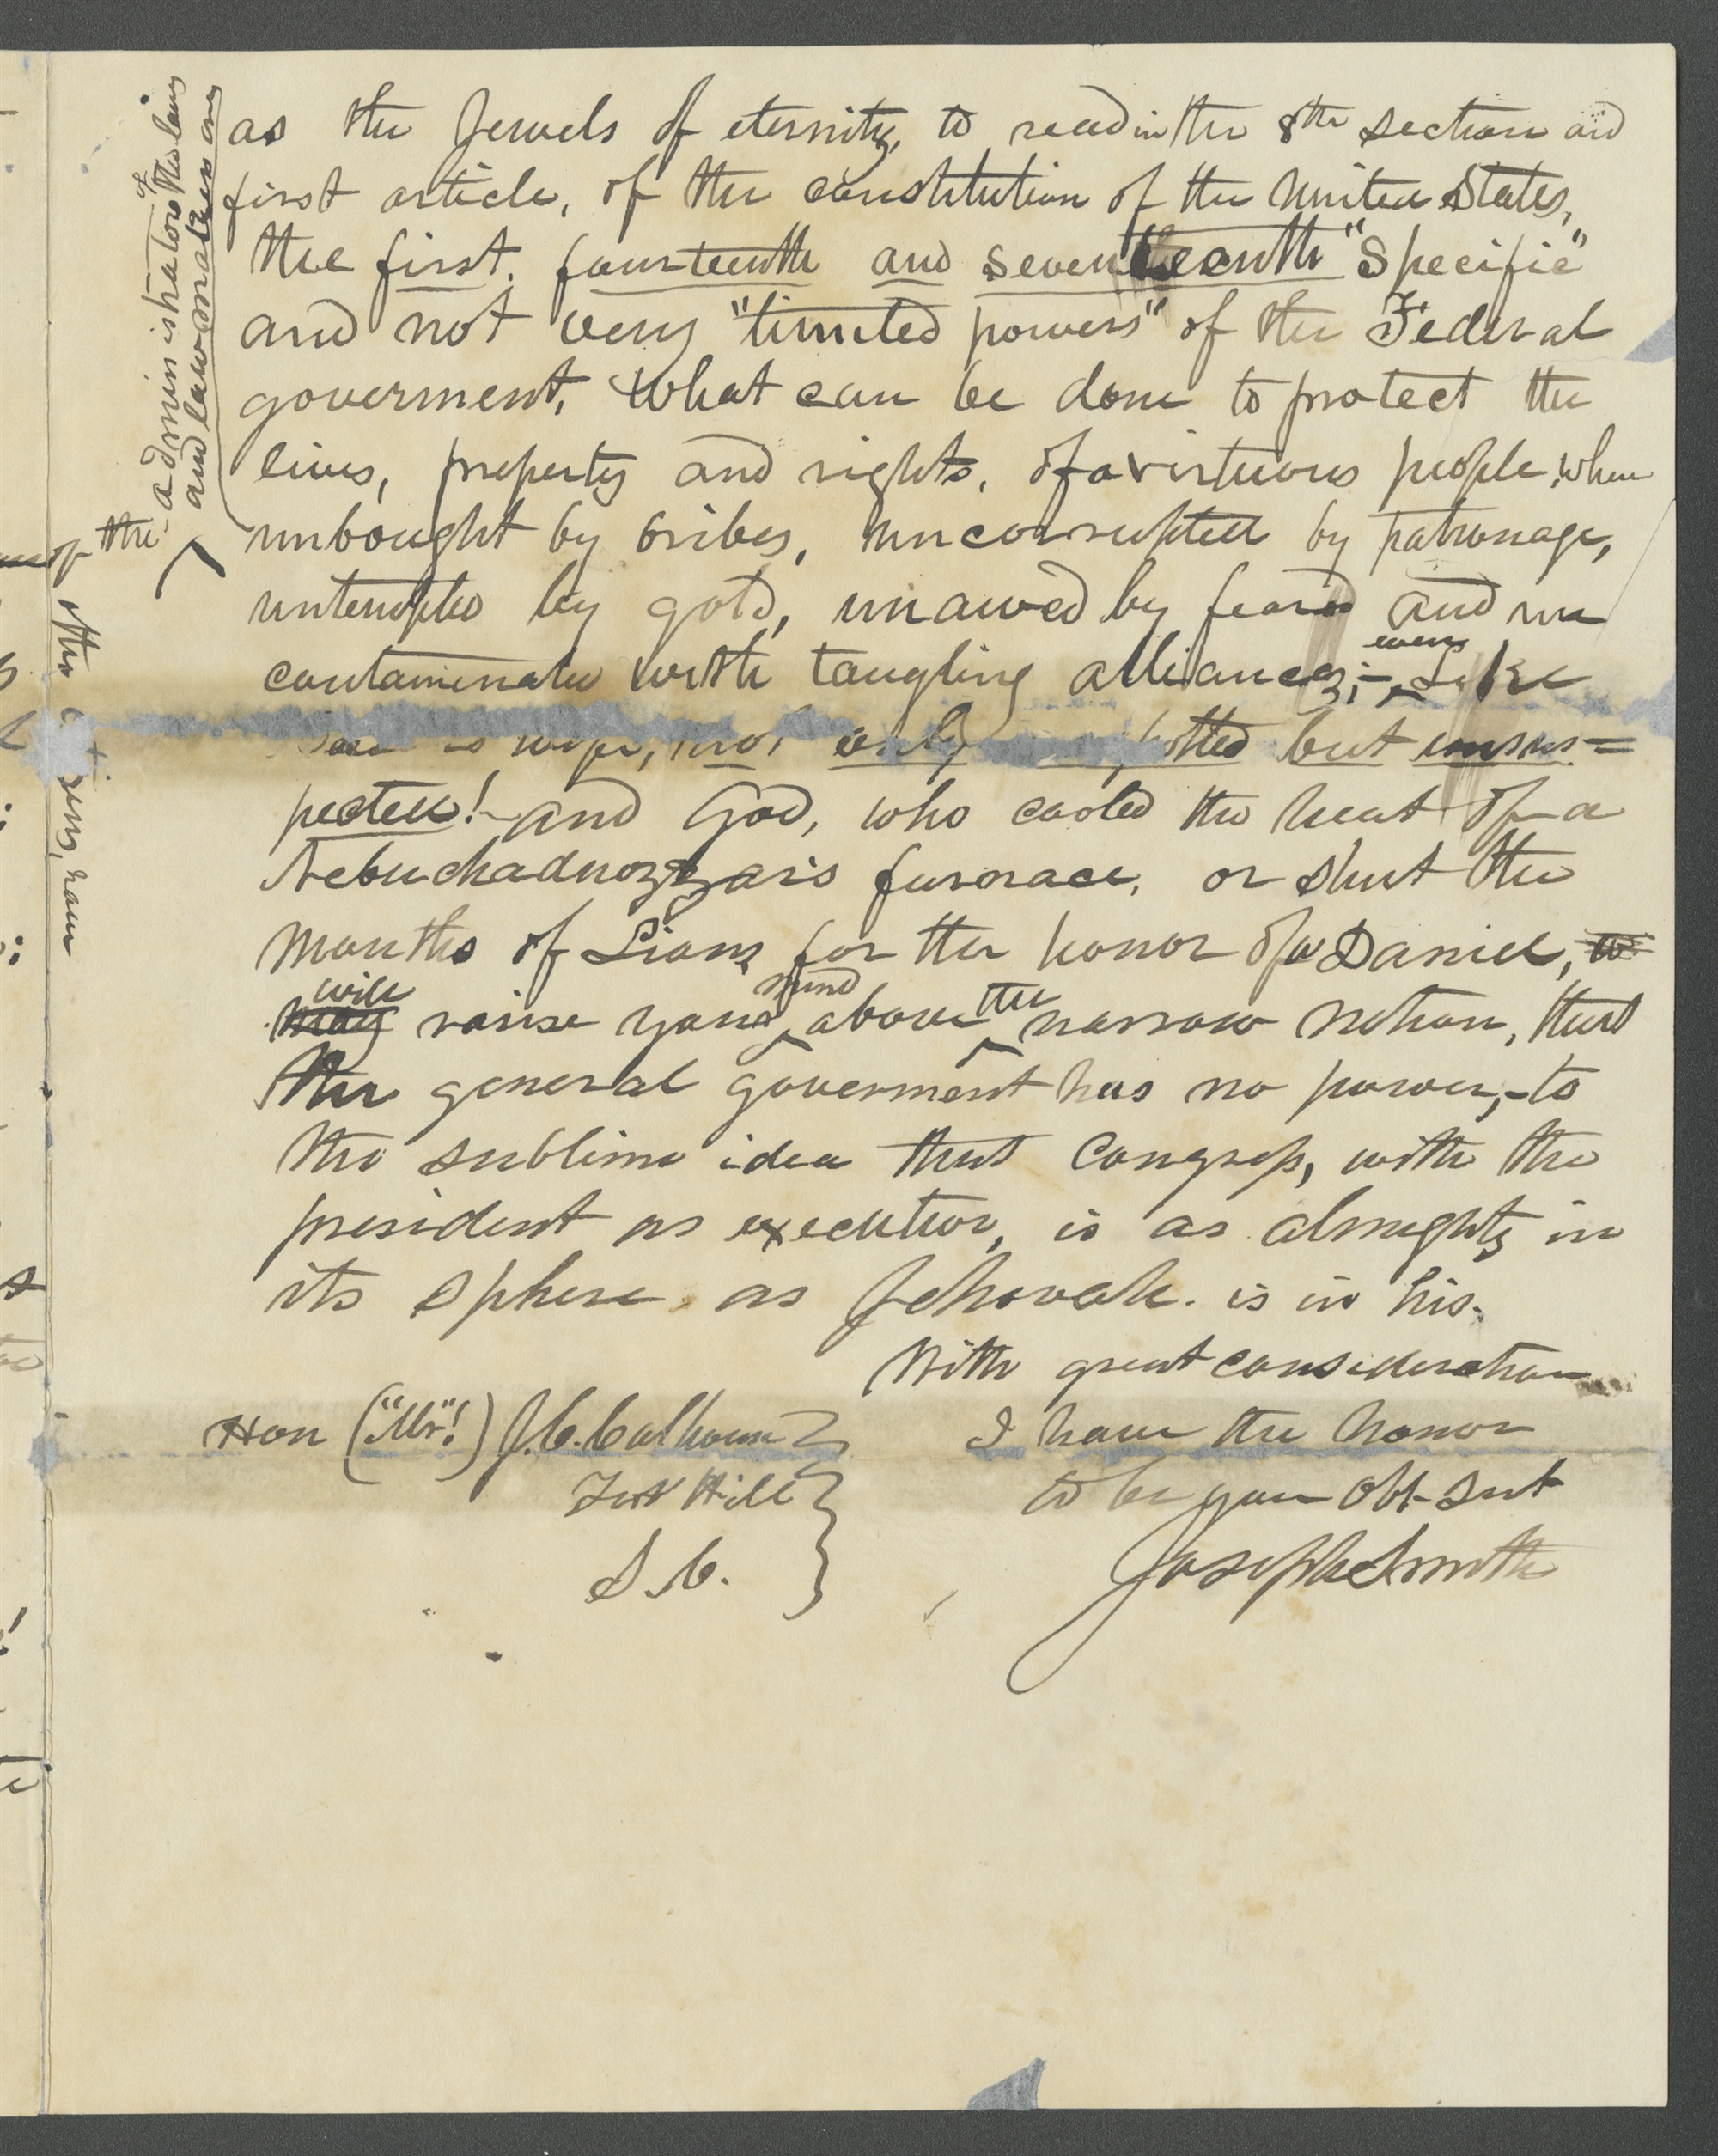 as the Jewels of eternity, to read in the 8th section and
first article, of the constitution of the United States,
the first, fourteenth and seventeenth "Specific"
and not very "limited powers" of the Federal
goverment, what can be done to protect the
lives, property and rights, of a virtuous people, when
the administrators of the law
and law-makers are
unbought by bribes, uncorrupted by patronage,
untempted by gold, unawed by fear and un
contaminated with tangling alliances;— even Like
wife, not only spotted but unsus=
pected! and God, who cooled the heat of a
Nebuchadnozzar's furnace, or shut the
mouths of Lions for the honor of a Daniel, to
may will raise your mind above the narrow notion, that
the general goverment has no power,—to
the sublime idea that Congress, with the
president as executor, is as almighty in
its sphere as Jehovah is in his.
With great consideration
Hon ("Mr"!) J. C. Calhoun
I have the honor
Fort Hill
to be your obt. svt
S. C.
Joseph Smith